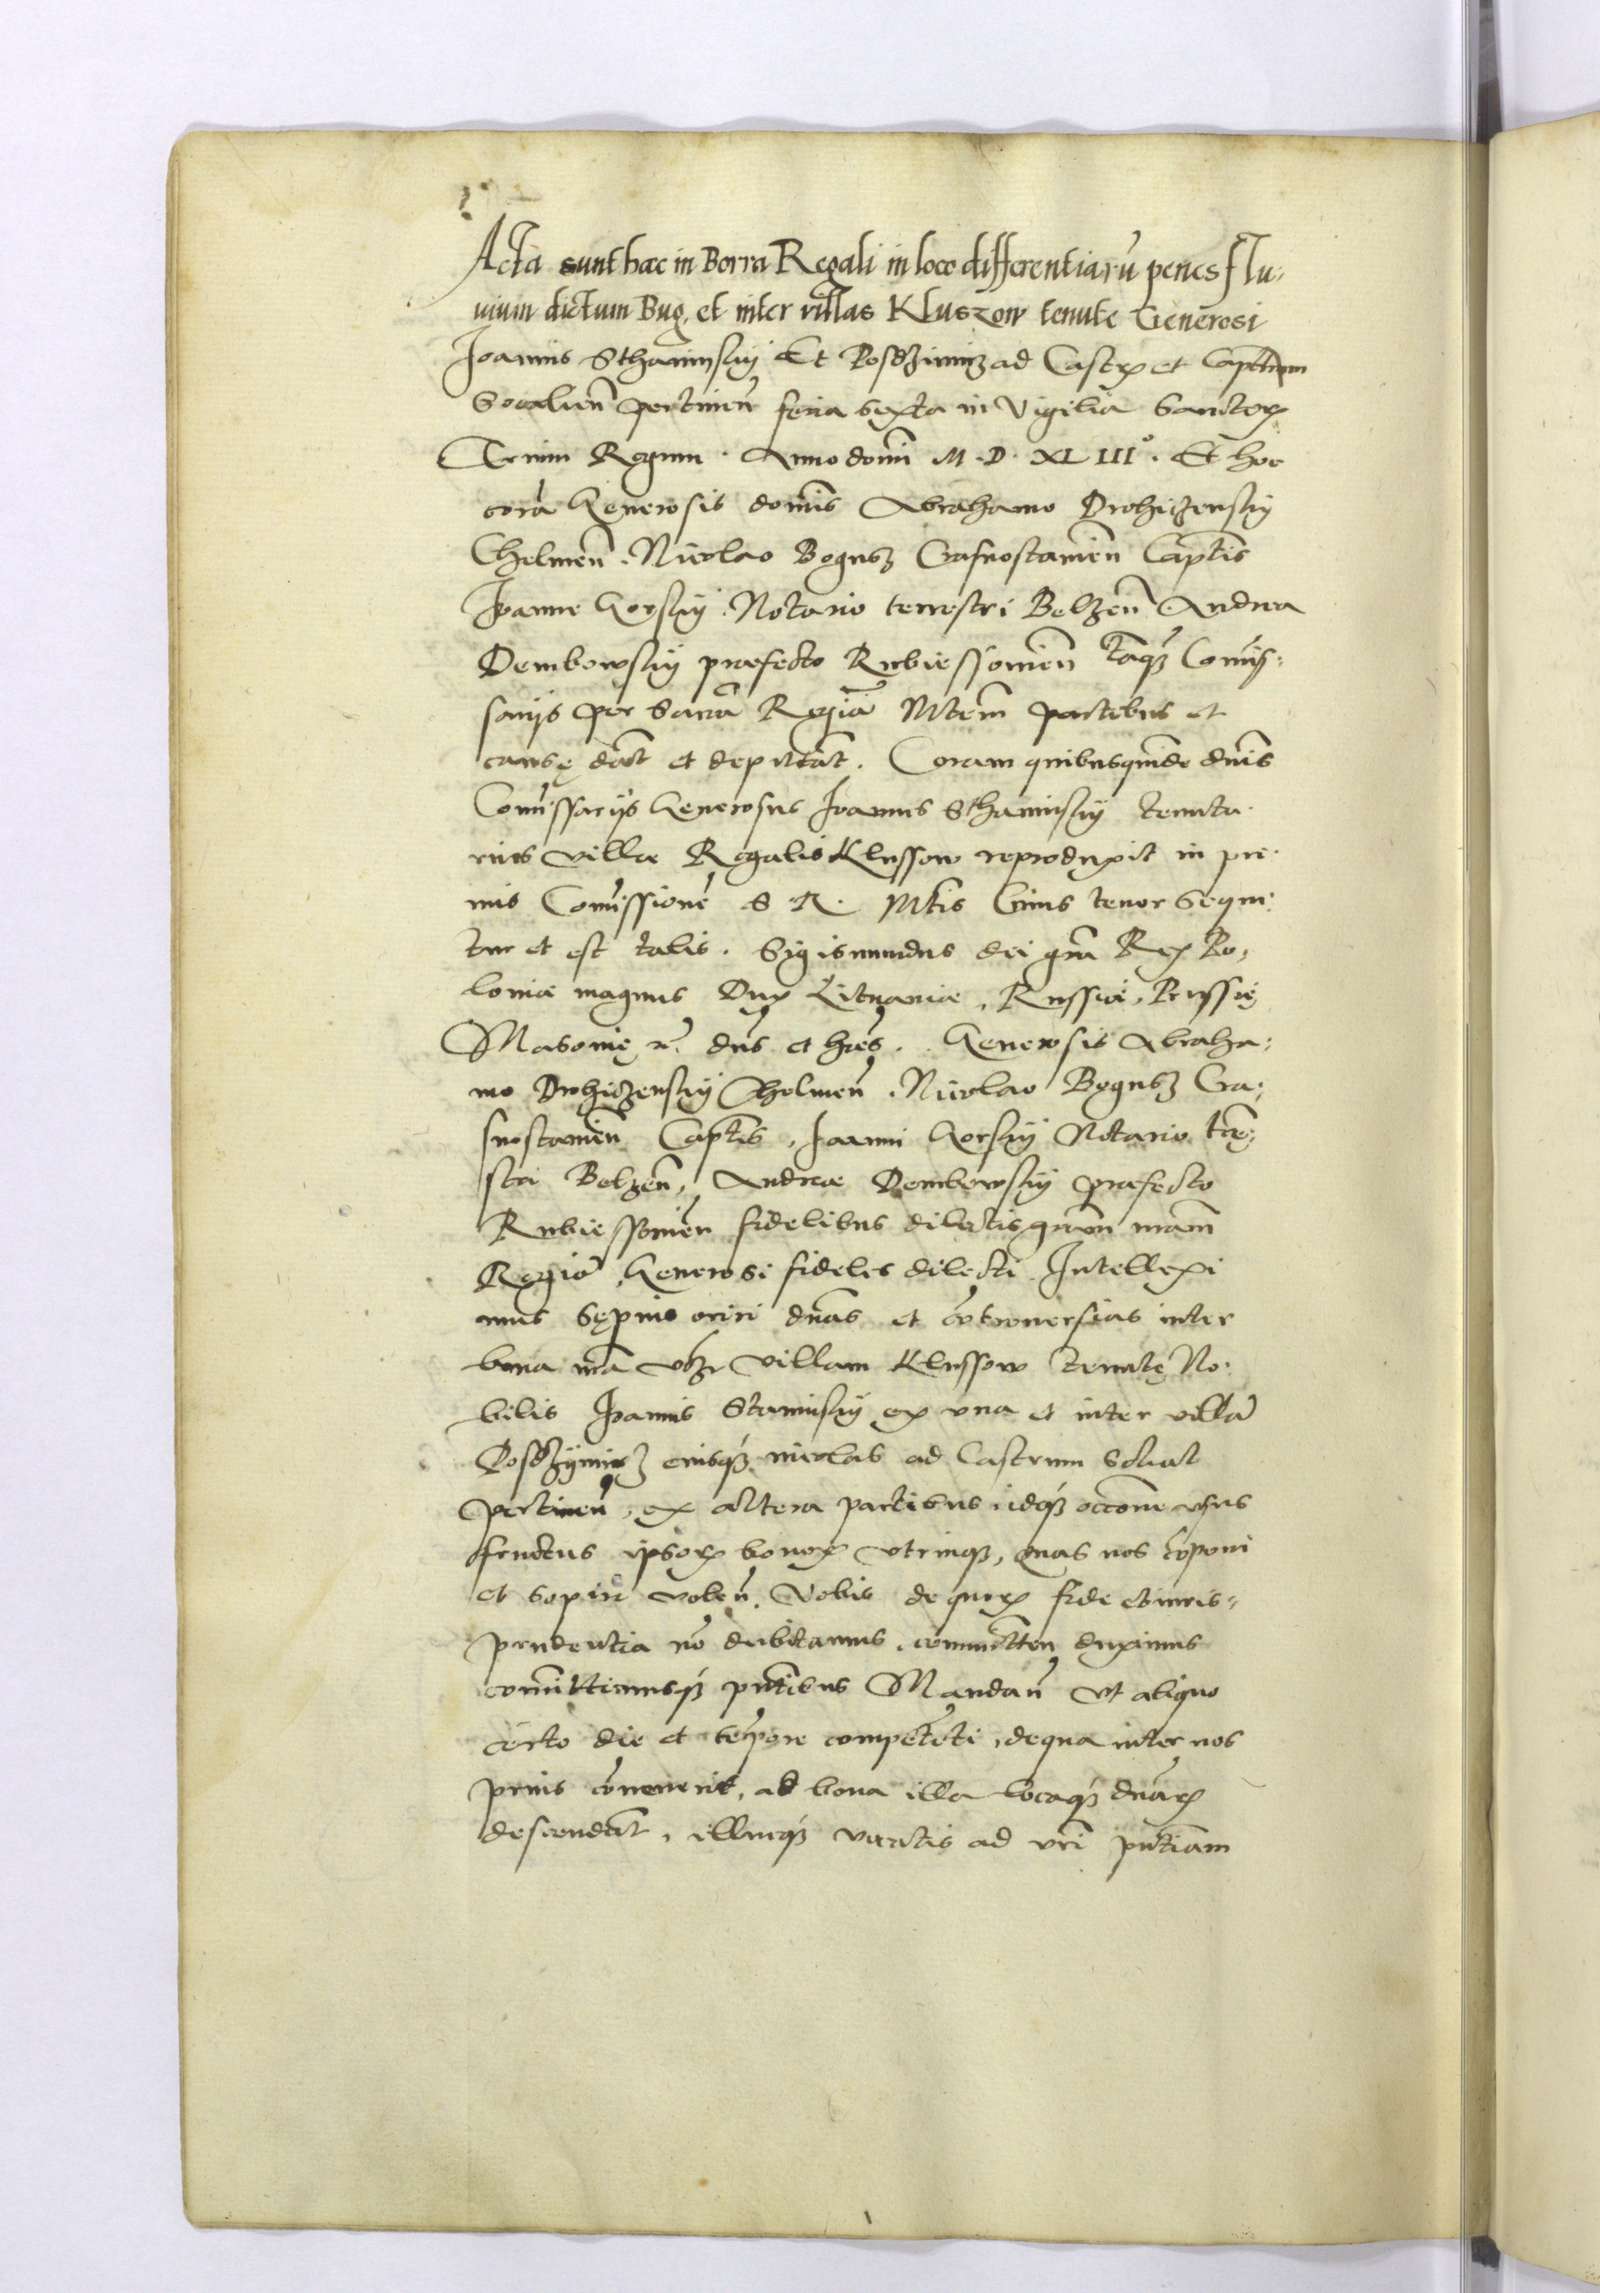 Acta sunt hæc in Borra Regali in loco differentiarū penes flu-
uium dictum Bug, et inter villas Kluszow tenute Generosi
Joannis Sthaminsky Et Posdzimirz ad Castrꝝ et Capteum
Socalien̄ pertinen̄ feria sexta in Vigilia Sanctorꝝ
Trium Regum . Anno domī M. D. XLIII° . Et hoc
corā Generosis dominis Abrahamo Drohiczensky
Chelmen̄ . Nicolao Bogusz Crasnostamien̄ Captīs
Joanne Gorsky . Notario terrestri Belzen̄ Andrea
Dembowsky præfecto Rubiessouien̄ tāqꝫ Comīs-
sarijs per Sacrā Regiā Mtem̄ partibus et
causę dāt et deputāt . Coram quibusquidē dnīs
Comīssarijs Generosus Joannes Sthaminsky tenuta-
rius villæ Regalis Klussow reproduxit in pri-
mis Comīssionē S. R. Mtīs Cuius tenor sequi-
tur et est talis . Sigismundus dei grā Rex Po-
loniæ magnus Dux Lituaniæ , Russiæ , Prussię
Masouię zc̄. dn̄s et hęres . Generosis Abraha-
mo Drohiczensky Chelmen̄ . Nicolao Bogusz Cra-
snostamien̄ Captīs , Joanni Gorsky Notario tere-
stri Belzen̄ , Andreæ Dembowsky præfecto
Rubiessouien̄ fidelibus dilectis grām nrām
Regiā . Generosi fideles dilecti Intellexi
mus sępius oriri dn̄as et cōtrouersias inter
bona nrā vꝫ villam Klussow tenutę No-
bilis Joannis Staminsky ex vna et inter villā
Posdzymirz eiusqꝫ incolas ad Castrum Socal
pertinen̄ , ex altera partibus , idqꝫ occōne vsus
fructus ipsorꝝ bonorꝝ vtrinqꝫ , quas nos cōponi
et sopiri volen̄ . Vobis de quorꝝ fide et iuris-
prudentia nō dubitamus , committen̄ duximus
committimusqꝫ pn̄tibus Mandan̄ vt aliquo
certo die et tēpore competēti , de qua inter uos
prius cōuenerit , ad bona illa locaqꝫ dn̄arꝝ
descendāt , illucqꝫ vocatis ad vrī pn̄tiam